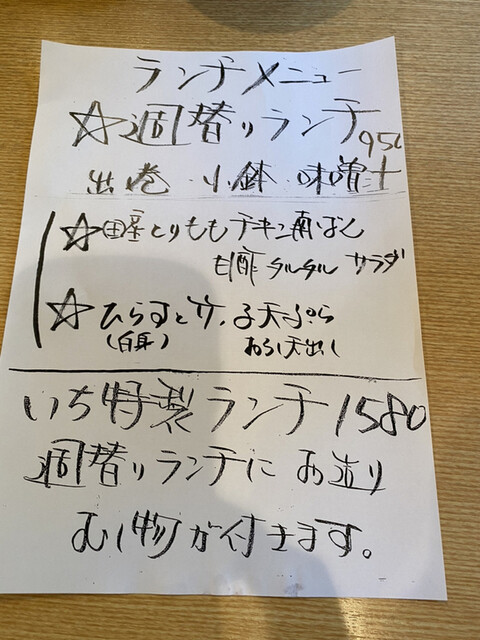 ランチメニュー
☆週替りランチ 950
出巻 小鉢 味噌汁
☆ とりももチキン南ばん
甘酢 タルタル サラダ
☆ ひらすと竹の子天ぷら
(白身) おろし天出し
いち特製ランチ1580
週替りランチに お造り
むし物が付きます。